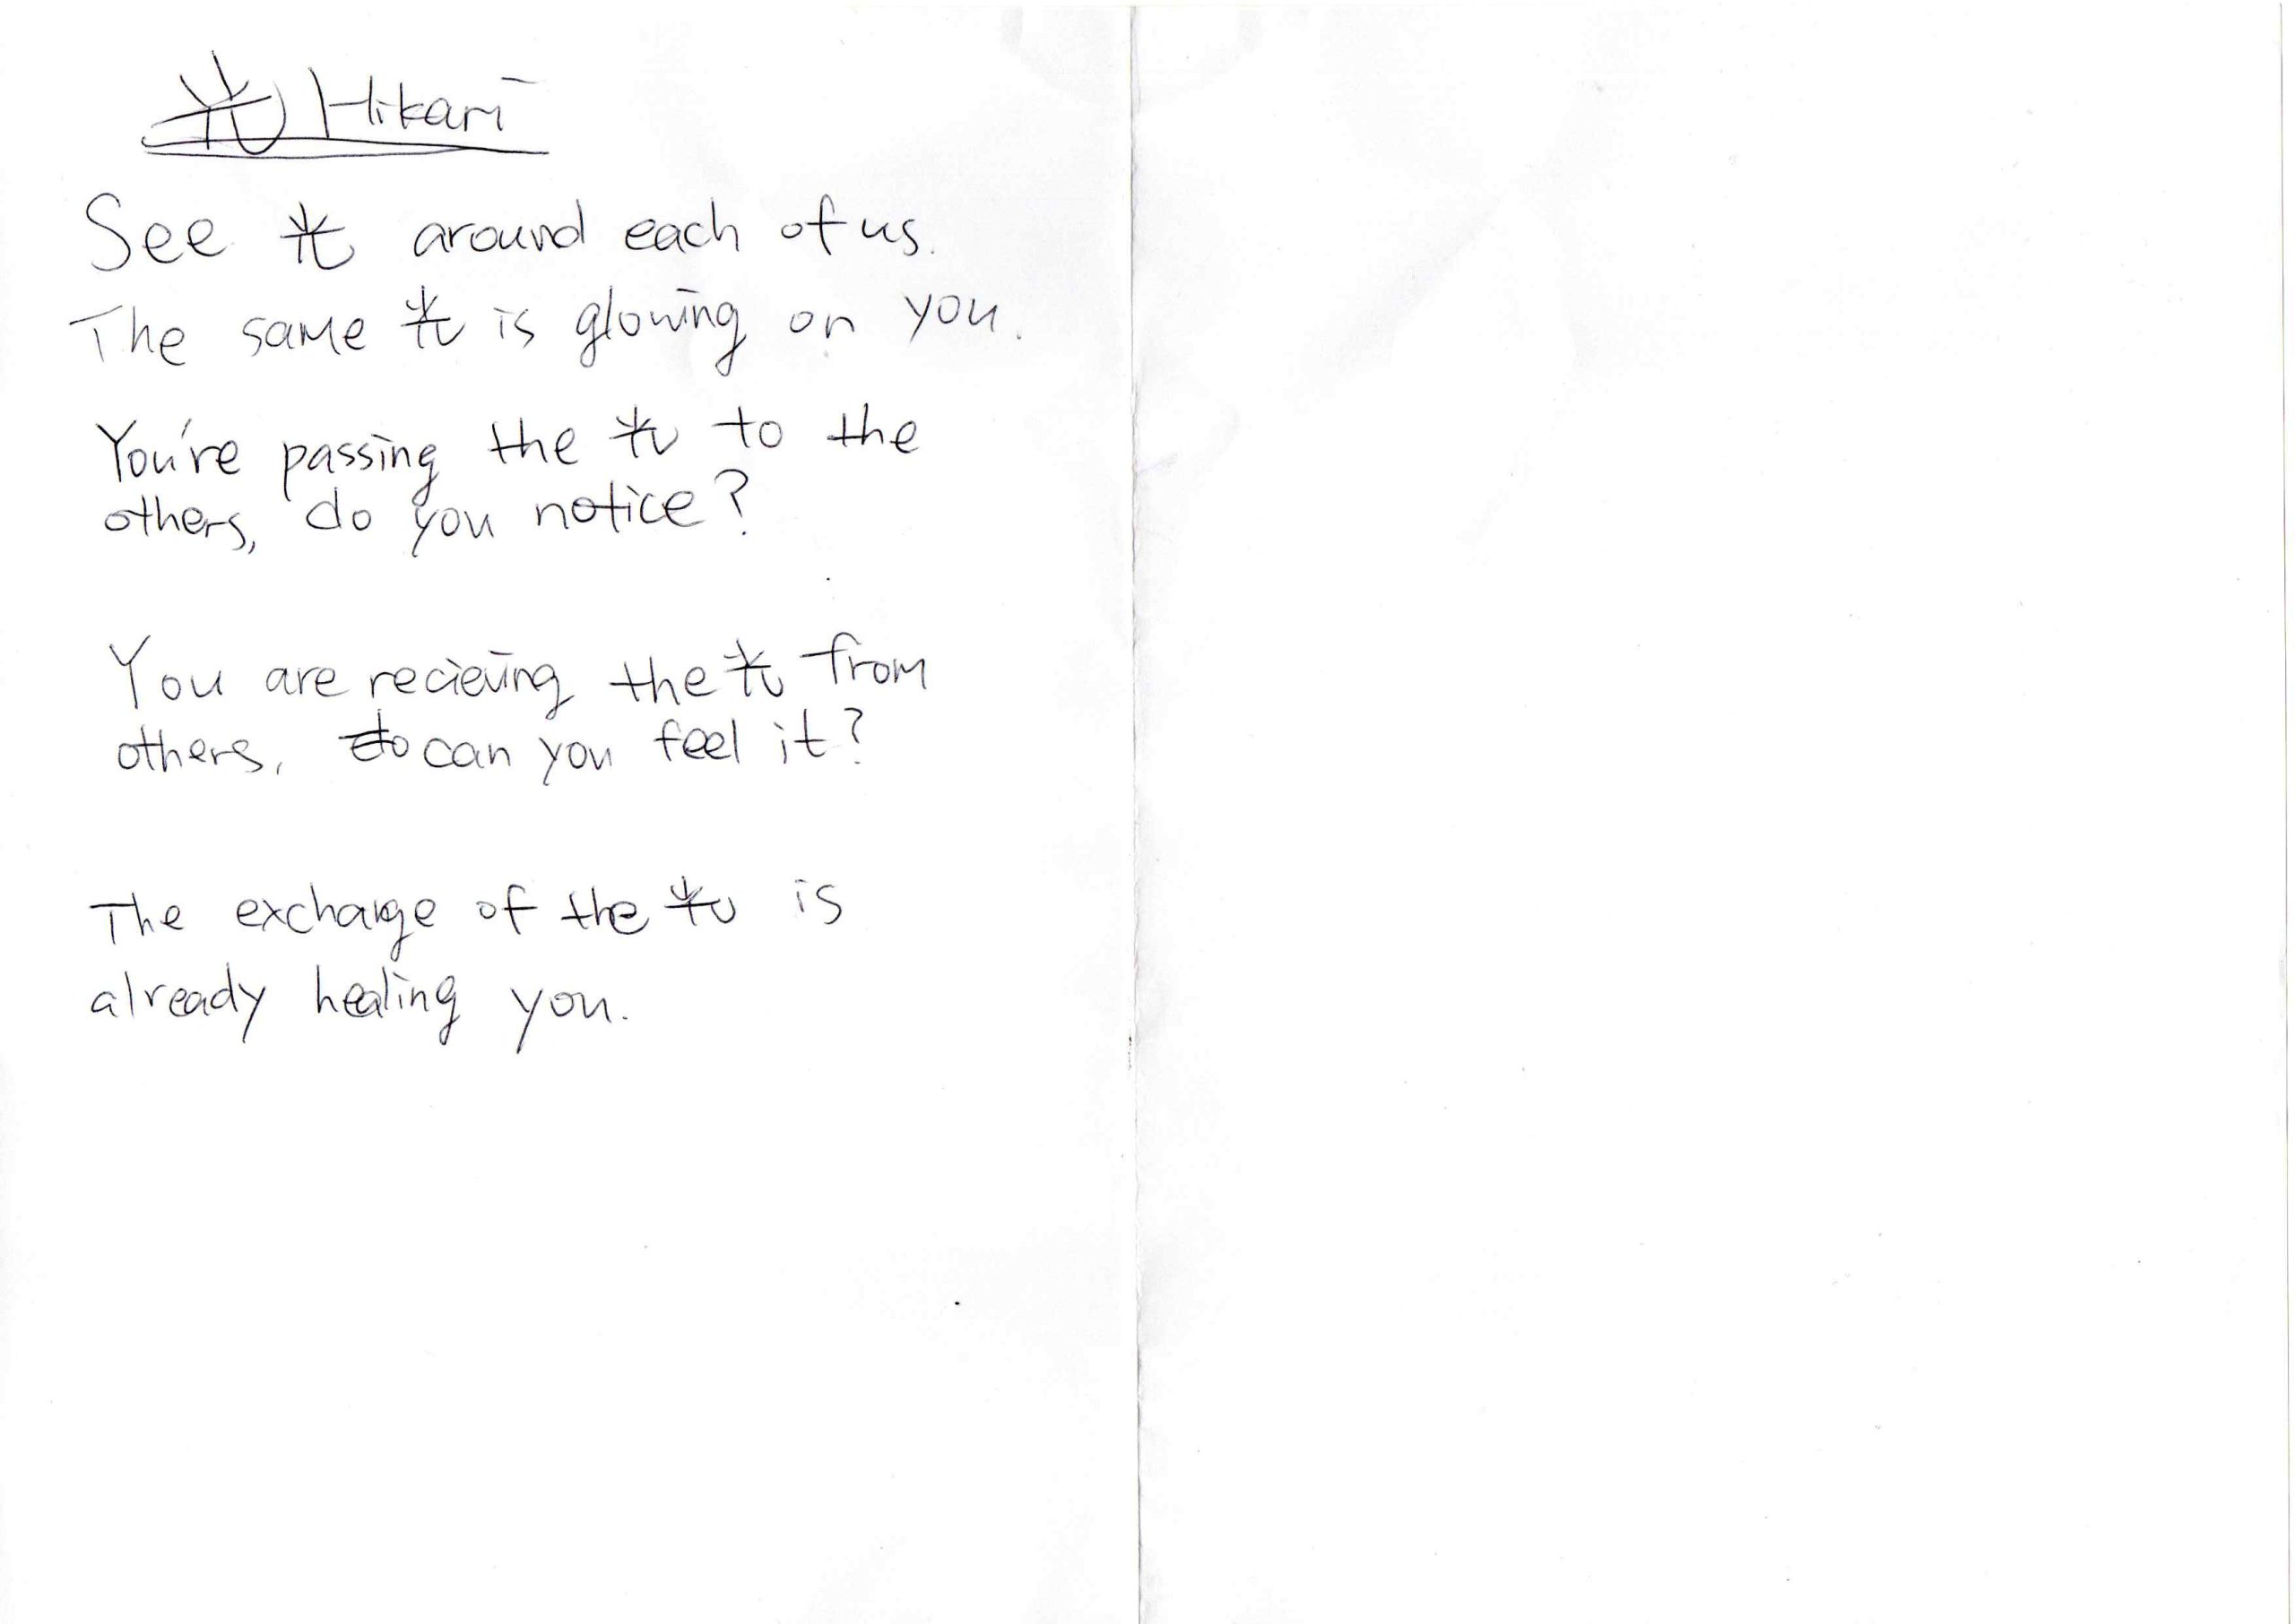 光 Hikari
See 光 around each of us.
The same 光 is glowing on you.
You're passing the 光 to the
others, do you notice?
You are recieving the 光 from
others, do can you feel it?
The exchange of the 光 is
already healing you.